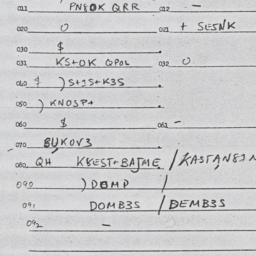 011 PN8OK QRR 012 -
020 O 021 + SESNK
030 $
031 KS+OK QPOL 032 O
040 $ ) S+JS+K3S
050 ) KNOSP+
060 $ 061 -
070 BUKOV3
080 QH K8EST+BAJME / KASTAN83N
090 ) DOMP /
091 DOMB3S / DEMB3S
092 -